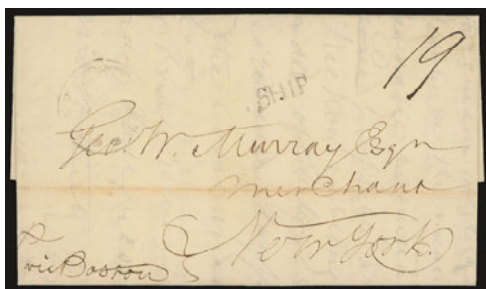 19
SHIP
Geo. W. Murray Esqr
Merchant
New York.
via Boston